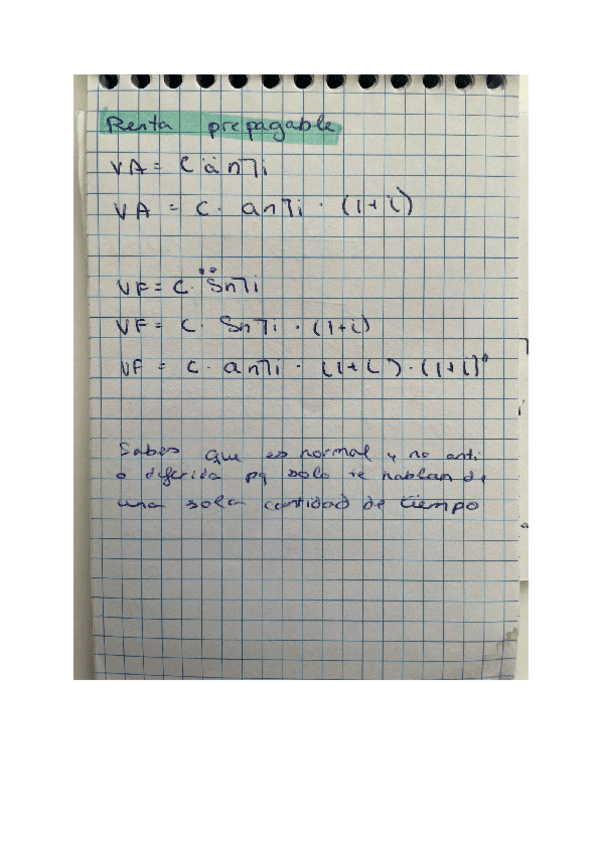 Renta prepagable
VA = C än̅|i
VA = C · an̅|i · (1+i)
VF = C · s̈n̅|i
VF = C · Sn̅|i · (1+i)
VF = C · an̅|i · (1+i) · (1+i)ⁿ
Sabes que es normal y no anti
o diferida pq solo te hablan de
una sola cantidad de tiempo